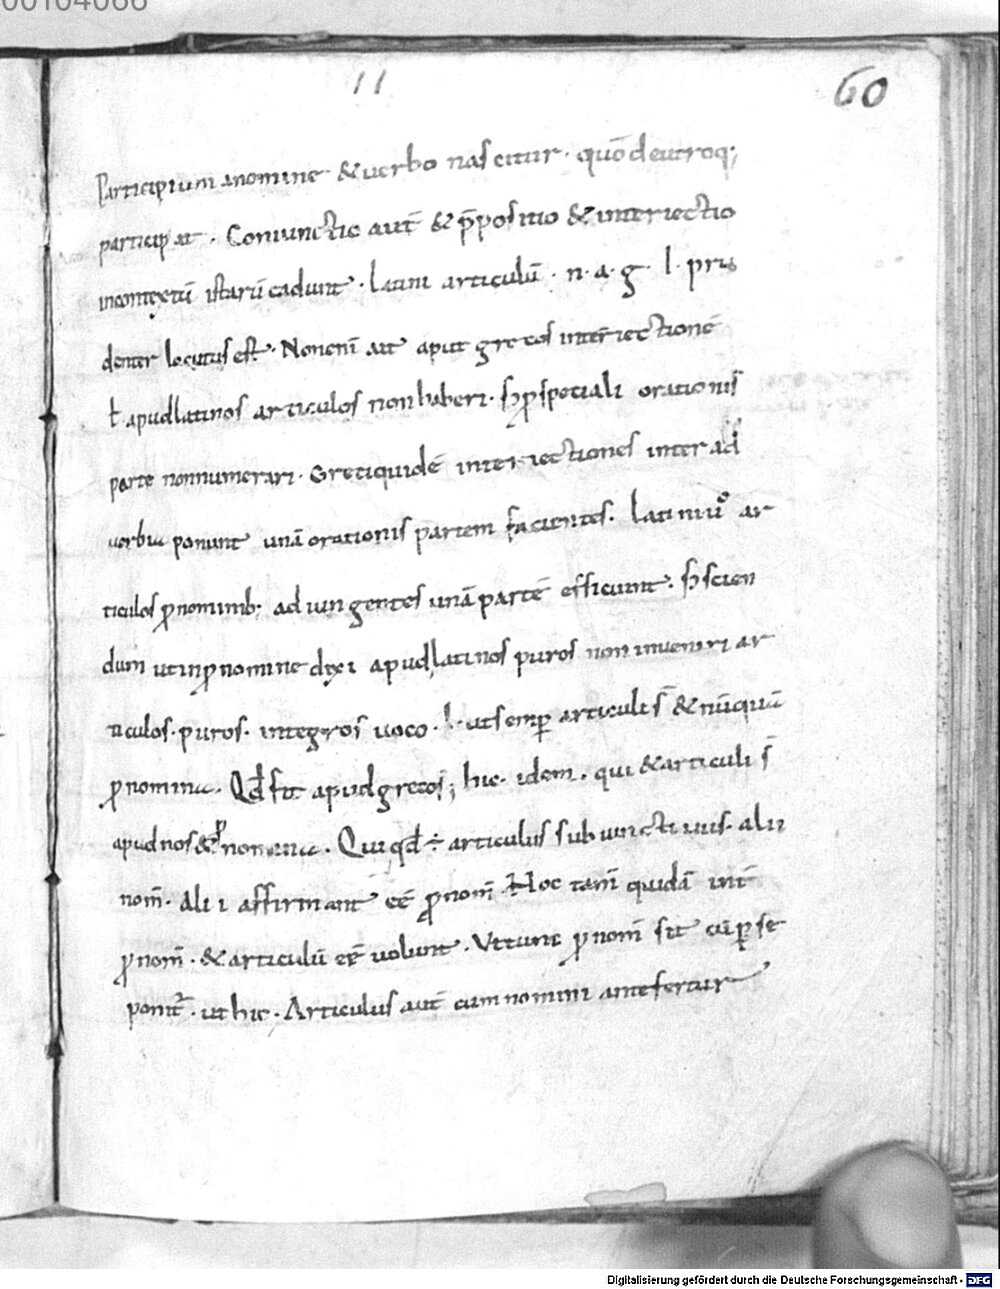 00104066
11 60
Participium anomine & uerbo nascitur · quōdeutroq;
participat · Coniunctio aut̄ & p̄positio & interiectio
incontextū istarū cadunt · Latini articulū · n · a · g · l · pru
denter locutus est · Non enī ait aput grecos interiectionē
ł apud latinos articulos non haberi · sꝑ speciali orationis
parte non numerari · Greci quidē interiectiones inter ad
uerbia ponunt unā orationis partem facientes · Latini ū ar
ticulos ꝓnominib; adiungentes unā partē efficiunt · scien
dum ut in ꝓnomine dixi apud latinos puros non inueniri ar
ticulos · puros · integros uoco · ł · ut semꝑ articuli s̄ & nūquā
ꝓnomina · Qd̄ fit apud grecos; hic · idem · qui & articuli s̄
apud nos & ꝓnomina · Qui qd̄ ÷ articulus subiunctiuus · alii
nom̄ · Alii affirmant eē ꝓnom̄ · Hoc tam̄ quidā int̄
ꝓnom̄ · & articulū eē uolunt · Ut tunc ꝓnom̄ sit cū ꝑ se
ponit̄ · ut hic · Articulus aut̄ cum nomini antefertur
Digitalisierung gefördert durch die Deutsche Forschungsgemeinschaft - DFG